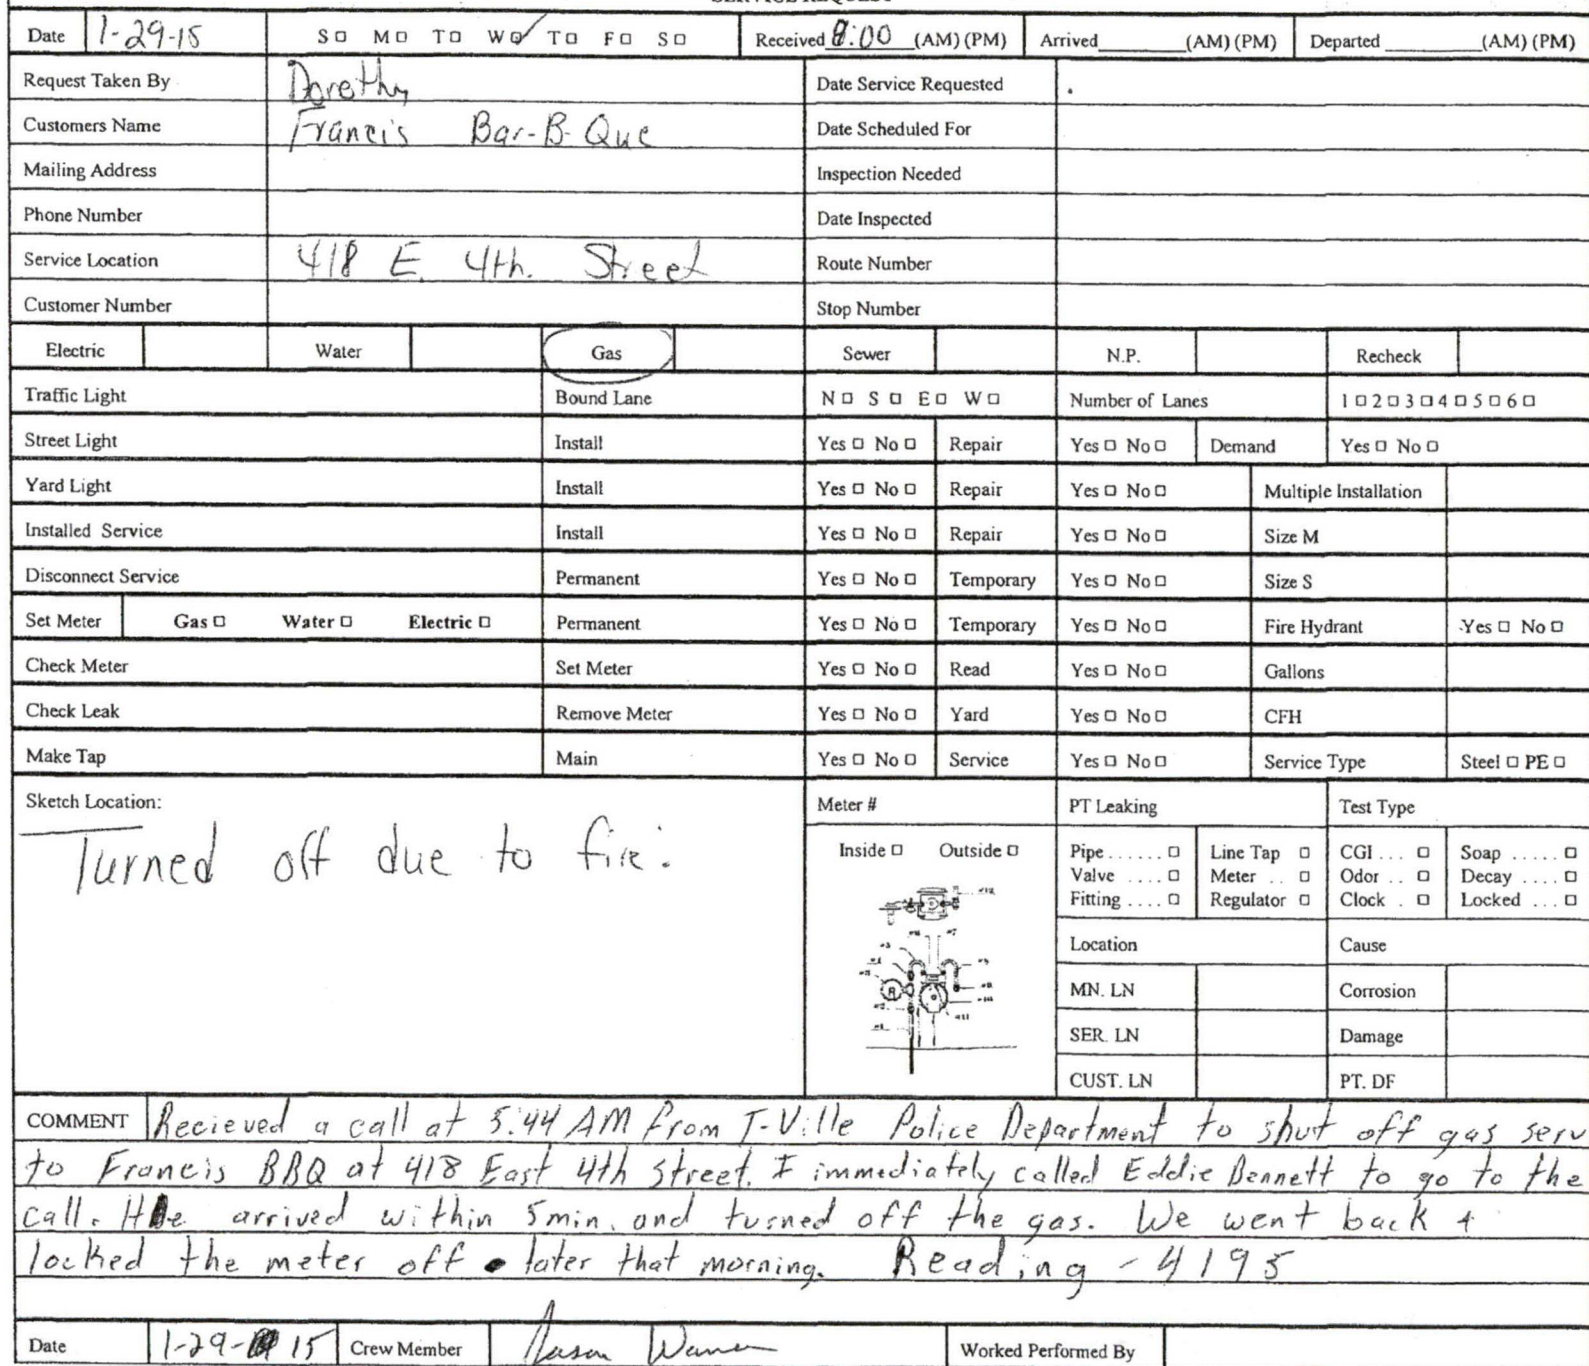 SERVICE REQUEST
Date 1-29-15 S□ M□ T□ W☑ T□ F□ S□ Received 8:00 (AM) (PM) Arrived (AM) (PM) Departed (AM) (PM)
Request Taken By Dorothy Date Service Requested
Customers Name Francis Bar-B-Que Date Scheduled For
Mailing Address Inspection Needed
Phone Number Date Inspected
Service Location 418 E. 4th. Street Route Number
Customer Number Stop Number
Electric Water Gas Sewer N.P. Recheck
Traffic Light Bound Lane N□ S□ E□ W□ Number of Lanes 1□2□3□4□5□6□
Street Light Install Yes□ No□ Repair Yes□ No□ Demand Yes□ No□
Yard Light Install Yes□ No□ Repair Yes□ No□ Multiple Installation
Installed Service Install Yes□ No□ Repair Yes□ No□ Size M
Disconnect Service Permanent Yes□ No□ Temporary Yes□ No□ Size S
Set Meter Gas□ Water□ Electric□ Permanent Yes□ No□ Temporary Yes□ No□ Fire Hydrant Yes□ No□
Check Meter Set Meter Yes□ No□ Read Yes□ No□ Gallons
Check Leak Remove Meter Yes□ No□ Yard Yes□ No□ CFH
Make Tap Main Yes□ No□ Service Yes□ No□ Service Type Steel□ PE□
Sketch Location: Meter # PT Leaking Test Type
Turned off due to fire.
Inside□ Outside□ Pipe......□ Line Tap □ CGI... □ Soap .....□
Valve ....□ Meter .. □ Odor .. □ Decay ....□
Fitting ....□ Regulator □ Clock . □ Locked ...□
Location Cause
MN. LN Corrosion
SER. LN Damage
CUST. LN PT. DF
COMMENT Recieved a call at 5:44 AM from T-Ville Police Department to shut off gas serv
to Francis BBQ at 418 East 4th Street. I immediately called Eddie Bennett to go to the
call. He arrived within 5min. and turned off the gas. We went back +
locked the meter off later that morning. Reading - 4195
Date 1-29-15 Crew Member Jason Worked Performed By